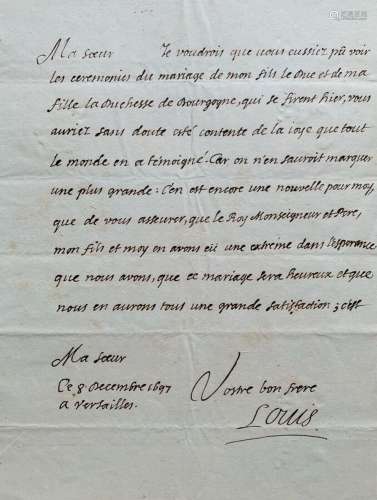 Ma sœur Je voudrois que vous eussiez pû voir
les ceremonies du mariage de mon fils le Duc et de ma
fille la Duchesse de Bourgogne, qui se firent hier, vous
auriez sans doute esté contente de la joye que tout
le monde en a témoigné. Car on n'en sauroit marquer
une plus grande: C'en est encore une nouvelle pour moy,
que de vous asseurer, que le Roy Monseigneur et Pere,
mon fils et moy en avons eü une extrême dans l'esperance
que nous avons, que ce mariage sera heureux et que
nous en aurons tous une grande satisfaction; c'est
Ma sœur
Ce 8 Decembre 1697 Vostre bon frere
a Versailles. Louis